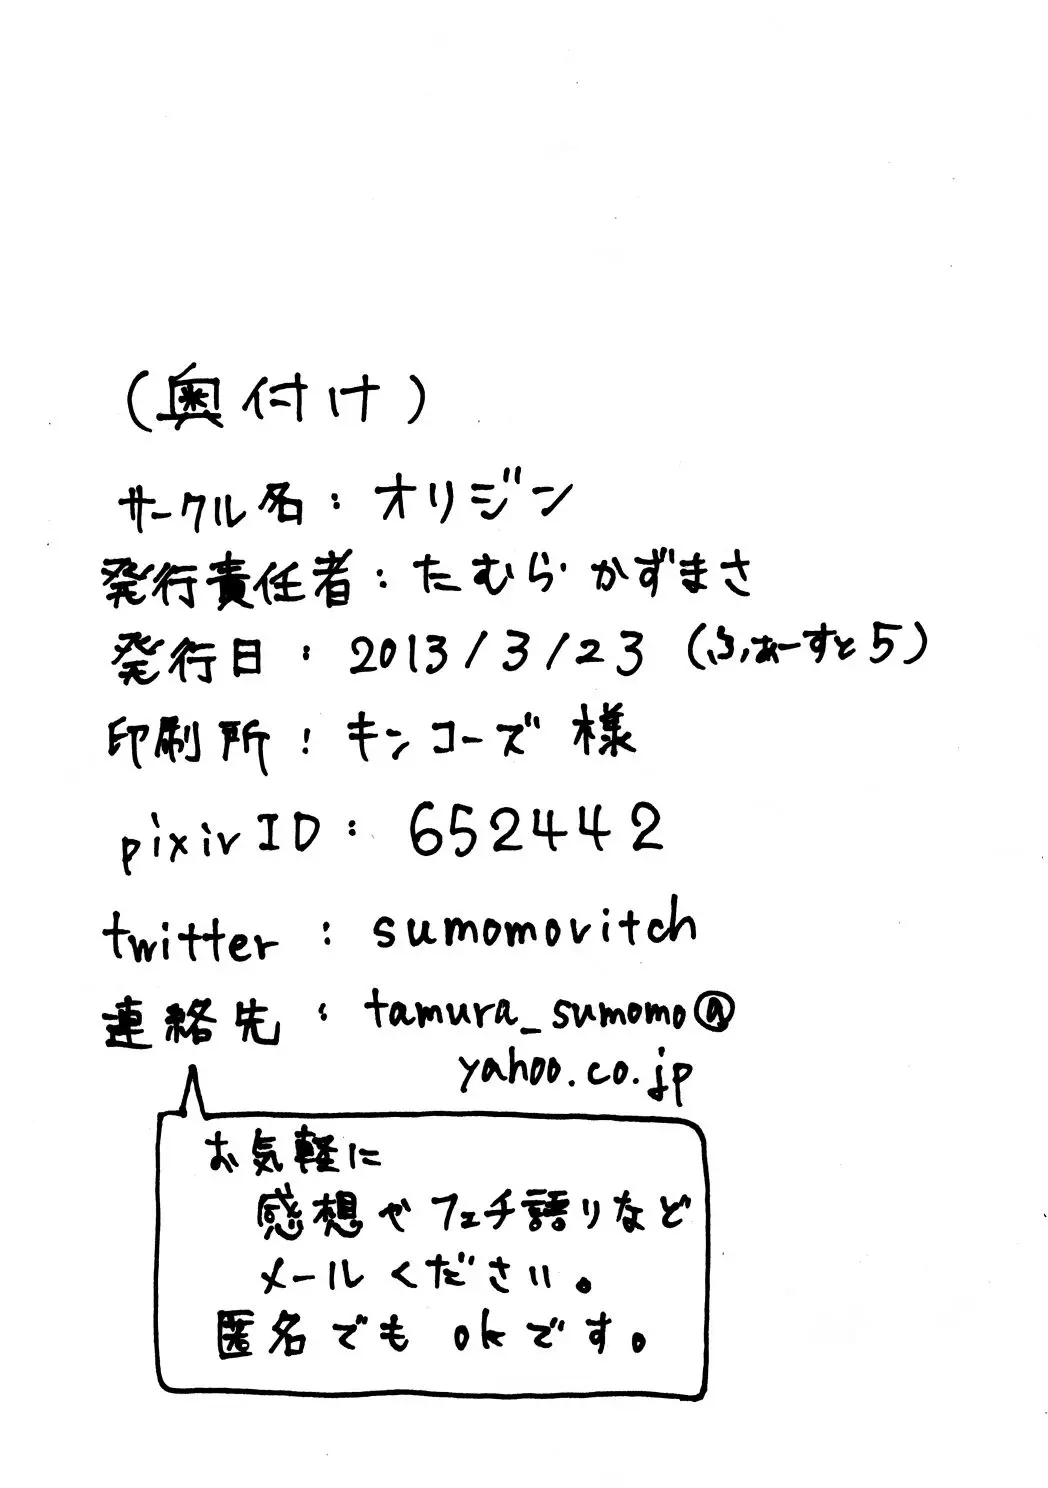 (奥付け)
サークル名:オリジン
発行責任者:たむらかずまさ
発行日:2013/3/23(ふぁーすと5)
印刷所:キンコーズ様
pixivID:652442
twitter:sumomovitch
連絡先:tamura_sumomo@
yahoo.co.jp
お気軽に
感想やフェチ語りなど
メールください。
匿名でもokです。